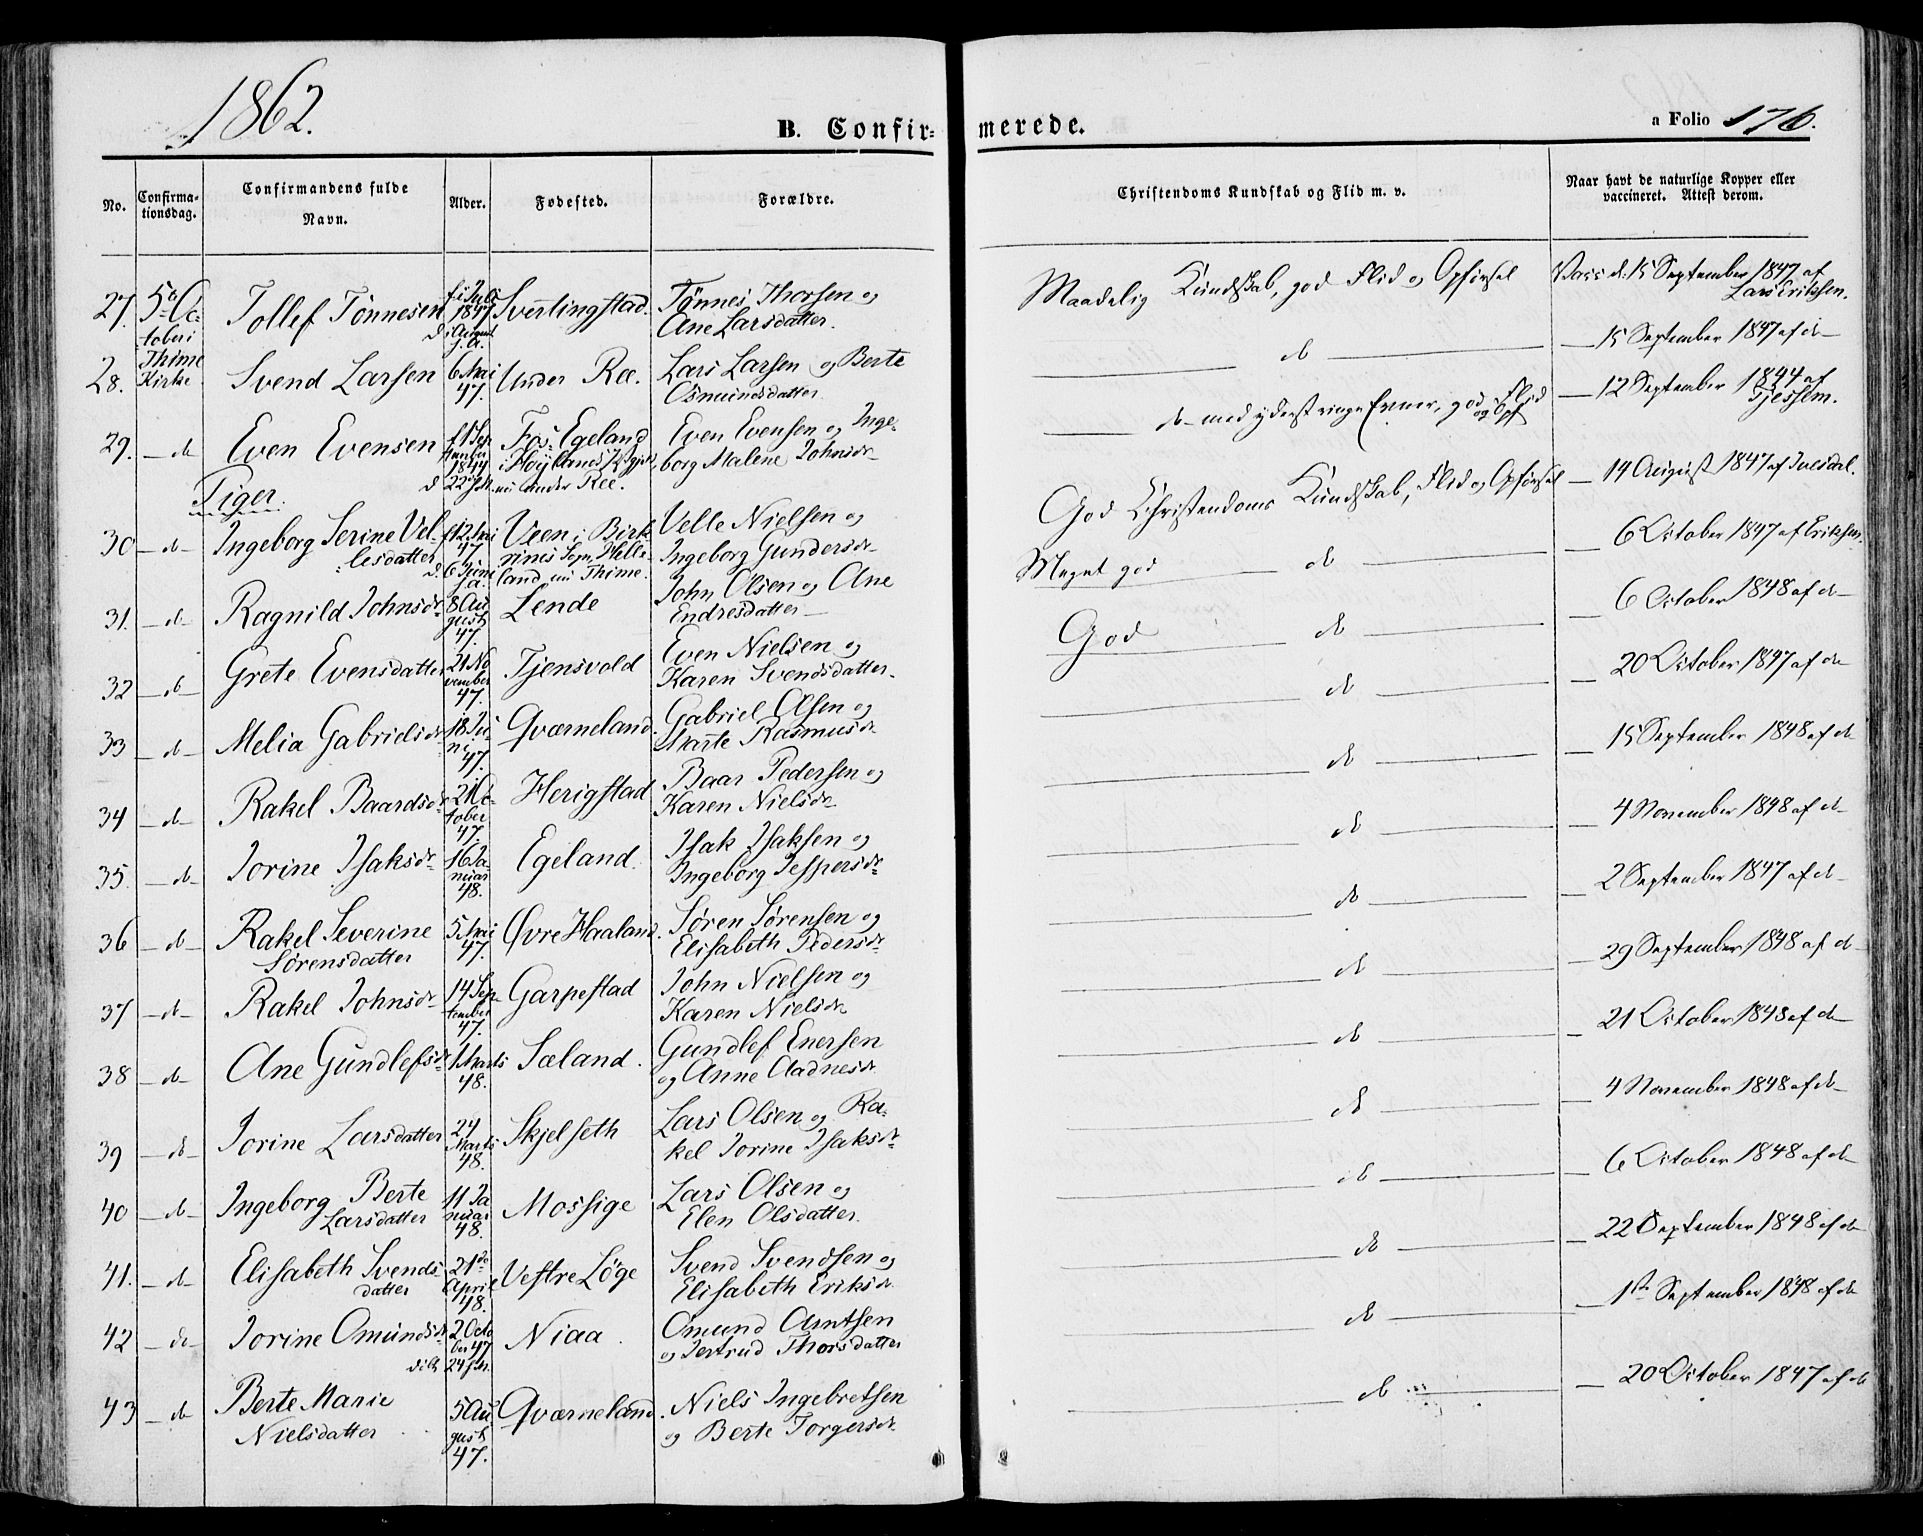 1862.
B. Confir- merede.
a Folio 176.
No. Confirma-tionsdag. Confirmandens fulde Navn. Alder. Fødested. Forældre. Christendoms Kundskab og Flid m. v. Naar havt de naturlige Kopper eller vaccineret. Attest derom.
27. 5 Oc- Tollef Tønnesen f. i Juli Sværtingstad. Tønnes Thorsen og Maadelig Kundskab, god Flid og Opførsel Vacc d. 15 September 1847 af
tober i 1847 Ane Larsdatter. Lars Eriksen.
d. i August
s. A.
28. Thime Svend Larsen 6 Mai Under Ree. Lars Larsen og Berte do 15 September 1847 af do
Kirke. 47. Osmundsdatter
29. do Even Evensen f. 1 Sep- Fos-Egeland Even Evensen og Inge- do med yderst ringe Evner, god Flid 12 September 1844 af
tember i Høylands Præstegjeld, borg Malene Johnsdr og Opf Tjessem.
1844 nu under Ree.
d 22 s. M.
Piger.
30 do Ingeborg Serine Vel- f. 12 Mai Veen i Birk- Velle Nielsen og God Christendoms Kundskab, Flid og Opførsel 14 August 1847 af Ivesdal.
lesdatter 47 rims Sogn, Helle- Ingeborg Gundersdr
d. 6 Juni land, nu Thime.
s. A.
31. do Ragnild Johnsdr 8 Au- Lende John Olsen og Ane Meget god do 6 October 1847 af Eriksen.
gust Endresdatter
47.
32 do Grete Evensdatter 21 No- Tjensvold Even Nielsen og God do 6 October 1848 af do
vember Karen Svendsdatter.
47.
33 do Melia Gabrielsdr 18 Ju- Qværneland. Gabriel Olsen og do 20 October 1847 af do
ni Marte Rasmusdr
47.
34 do Rakel Baardsdr 21 Oc- Herigstad Baar Pedersen og do 15 September 1848 af do
tober Karen Nielsdr
47.
35. do Jorine Isaksdr 16 Ja- Egeland. Isak Isaksen og do 4 November 1848 af do
nuar Ingeborg Jespersdr
48.
36 do Rakel Severine 5 Mai Øvre Haaland. Søren Sørensen og do 2 September 1847 af do
Sørensdatter 47. Elisabeth Pedersdr
37 do Rakel Johnsdr 14 Sep- Garpestad John Nielsen og do 29 September 1848 af do
tember Karen Nielsdr
47.
38 do Ane Gundlefsdr 1 Marts Sæland. Gundlef Enersen do 21 October 1848 af do
48. og Anne Aadnesdr
39 do Jorine Larsdatter 24 Skjelseth Lars Olsen og Ra- do 4 November 1848 af do
Marts kel Jorine Isaksdr
48.
40 do Ingeborg Berte 11 Ja- Mossige Lars Olsen og do 6 October 1848 af do
Larsdatter nuar Elen Olsdatter.
48.
41. do Elisabeth Svends- 21de Vestre Løge Svend Svendsen og do 22 September 1848 af do
datter April Elisabeth Eriksdr
48.
42 do Jorine Omundsdr 2 Octo- Niaa. Omund Arntsen do 1ste September 1848 af do
ber 47 og Jertrud Thorsdatter
døbt 24 s. M.
43 do Berte Marie 5 Au- Qværneland. Niels Ingebretsen do 20 October 1847 af do
Nielsdatter gust og Berte Torgersdr
47.